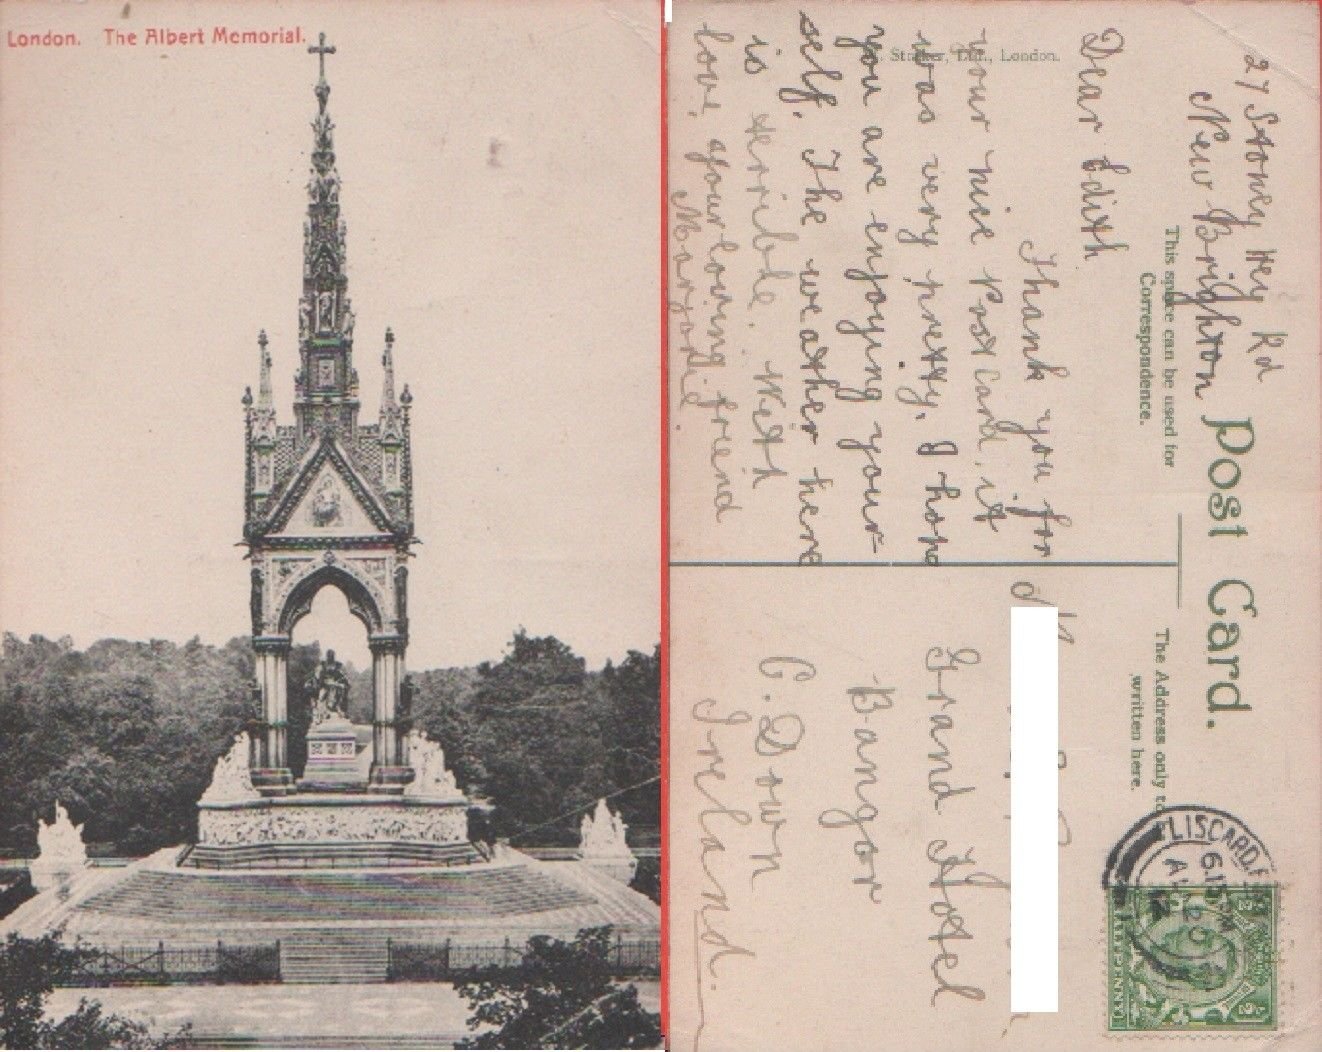 London. The Albert Memorial.
Ltd., London.
Post Card.
This space can be used for
Correspondence.
The Address only to
written here.
27 Stoney Hey Rd
New Brighton
Dear Edith
Thank you for
your nice Post Card, it
was very pretty. I hope
you are enjoying your
self. The weather here
is terrible. With
love, your loving friend
Marjorie.
Grand Hotel
Bangor
C. Down
Ireland.
LISCARD
6.15 PM
12